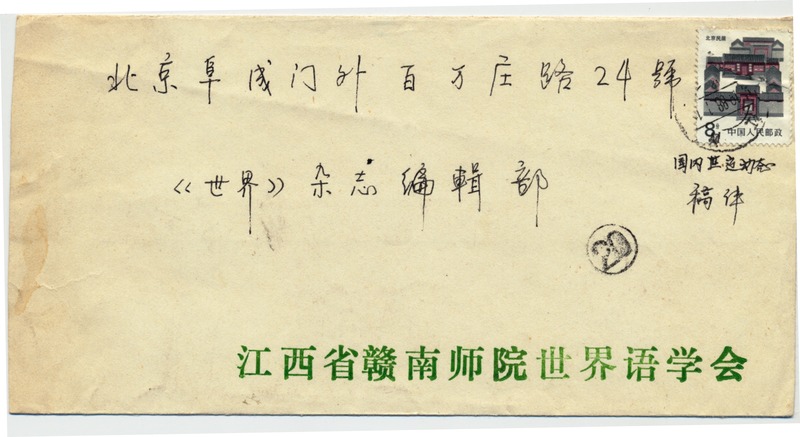 北京民居
8分
中国人民邮政
北京阜成门外百万庄路24號
国内世运动态
稿件
《世界》杂志编輯部
20
江西省赣南师院世界语学会